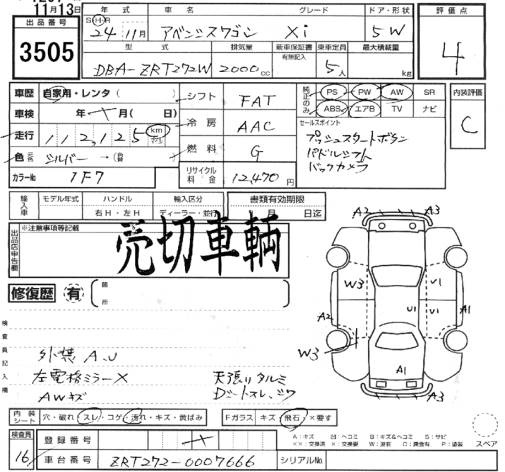 11月13日
出品番号 3505
年式 S・H・R 24年 11月
車名 アベンシスワゴン
グレード Xi
ドア・形状 5W
評価点 4
型式 DBA-ZRT272W
排気量 2000cc
新車保証書 有無記入
乗車定員 5人
最大積載量 kg
車歴 自家用・レンタ( )
車検 年 月( 日)
走行 112,125 km
色 (元色) シルバー → (替)
カラーNo 1F7
シフト FAT
冷房 AAC
燃料 G
リサイクル料金 12,470円
純正のみ PS PW AW SR
ABS エアB TV ナビ
セールスポイント
プッシュスタートボタン
パドルシフト
バックカメラ
内装評価 C
輸入車 モデル年式 ハンドル 右H・左H 輸入区分 ディーラー・並行
書類有効期限 月 日迄
出品店申告欄
※注意事項等記載
売切車輌
修復歴 有 箇所
検査員記入欄
外装A.U
左電格ミラーX
AWキズ
天張りタルミ
A2 A3
W3 U1
A2 U1 U1
W3 A1
A2 A3
内装シート 穴・破れ・スレ・コゲ・汚れ・キズ・黄ばみ
Fガラス キズ・飛石・×要す
A:キズ U:ヘコミ B:キズ&ヘコミ S:サビ
××:交換済 X:交換要 W:波有 C:腐食有 P:塗装
スペア
検査員 16
登録番号
車台番号 ZRT272-0007666
シリアルNo.